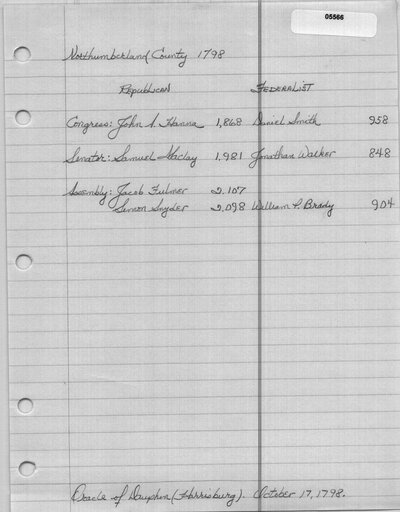 05566
Northumberland County 1798
Republican Federalist
Congress: John A. Hanna 1,868 Daniel Smith 958
Senator: Samuel Maclay 1,981 Jonathan Walker 848
Assembly: Jacob Fulmer 2,107
Simon Snyder 2,098 William P. Brady 904
Oracle of Dauphin (Harrisburg). October 17, 1798.